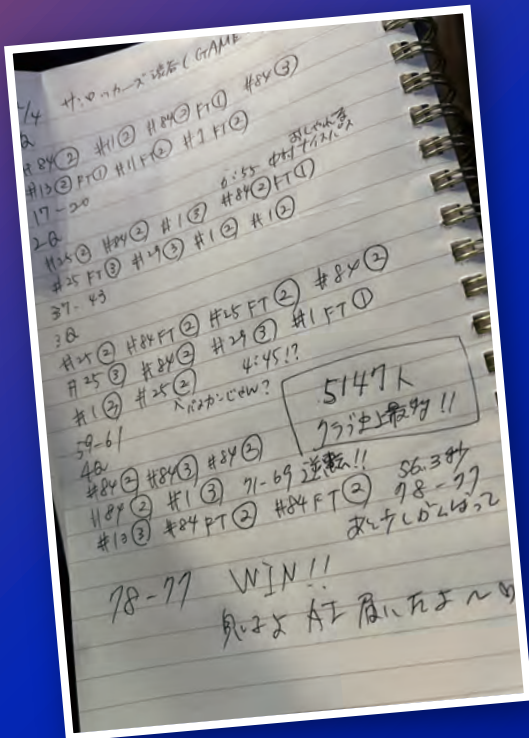 /4 サンロッカーズ渋谷 GAME
Q
#84② #11② #84② FT① #84③
#13② FT① #11 FT② #1 FT②
17-20
2Q 6:55 ナイスパス
#25② #84② #1③ #84② FT①
#25 FT③ #29③ #1② #1②
37-43
3Q
#25② #84 FT② #25 FT② #84②
#25③ #84② #29③ #1 FT①
#1② #25② 4:45!?
59-61
5147人
クラブ史上最多!!
4Q
#84② #84③ #84②
#84② #1③ 71-69 逆転!! 56.3秒
#13③ #84 FT② #84 FT② 78-77
あと少しがんばって
78-77 WIN!!